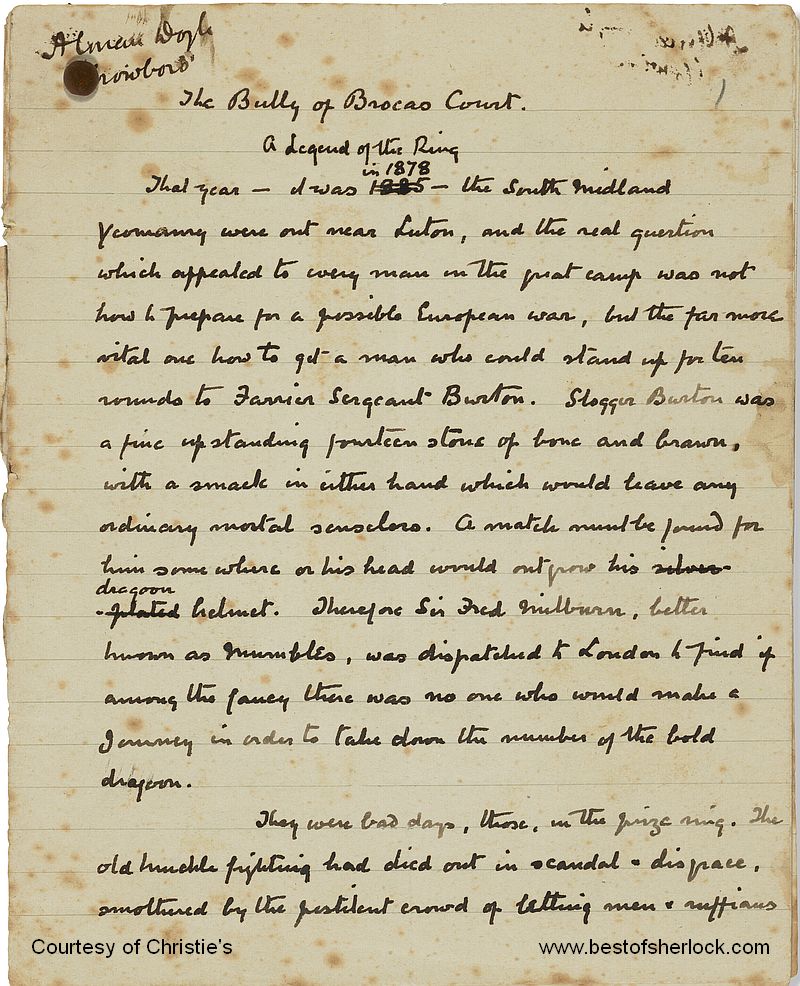 A Conan Doyle
Crowboro'
The Bully of Brocas Court.
A Legend of the Ring
in 1878
That year — it was 1885 — the South Midland
Yeomanry were out near Luton, and the real question
which appealed to every man in the great camp was not
how to prepare for a possible European war, but the far more
vital one how to get a man who could stand up for ten
rounds to Farrier Sergeant Burton. Slogger Burton was
a fine upstanding fourteen stone of bone and brawn,
with a smack in either hand which would leave any
ordinary mortal senseless. A match must be found for
him somewhere or his head would outgrow his silver
dragoon
-plated helmet. Therefore Sir Fred Milburn, better
known as Mumbles, was dispatched to London to find if
among the fancy there was no one who would make a
journey in order to take down the number of the bold
dragoon.
They were bad days, those, in the prize ring. The
old knuckle fighting had died out in scandal & disgrace,
smothered by the pestilent crowd of betting men & ruffians
Courtesy of Christie's
www.bestofsherlock.com